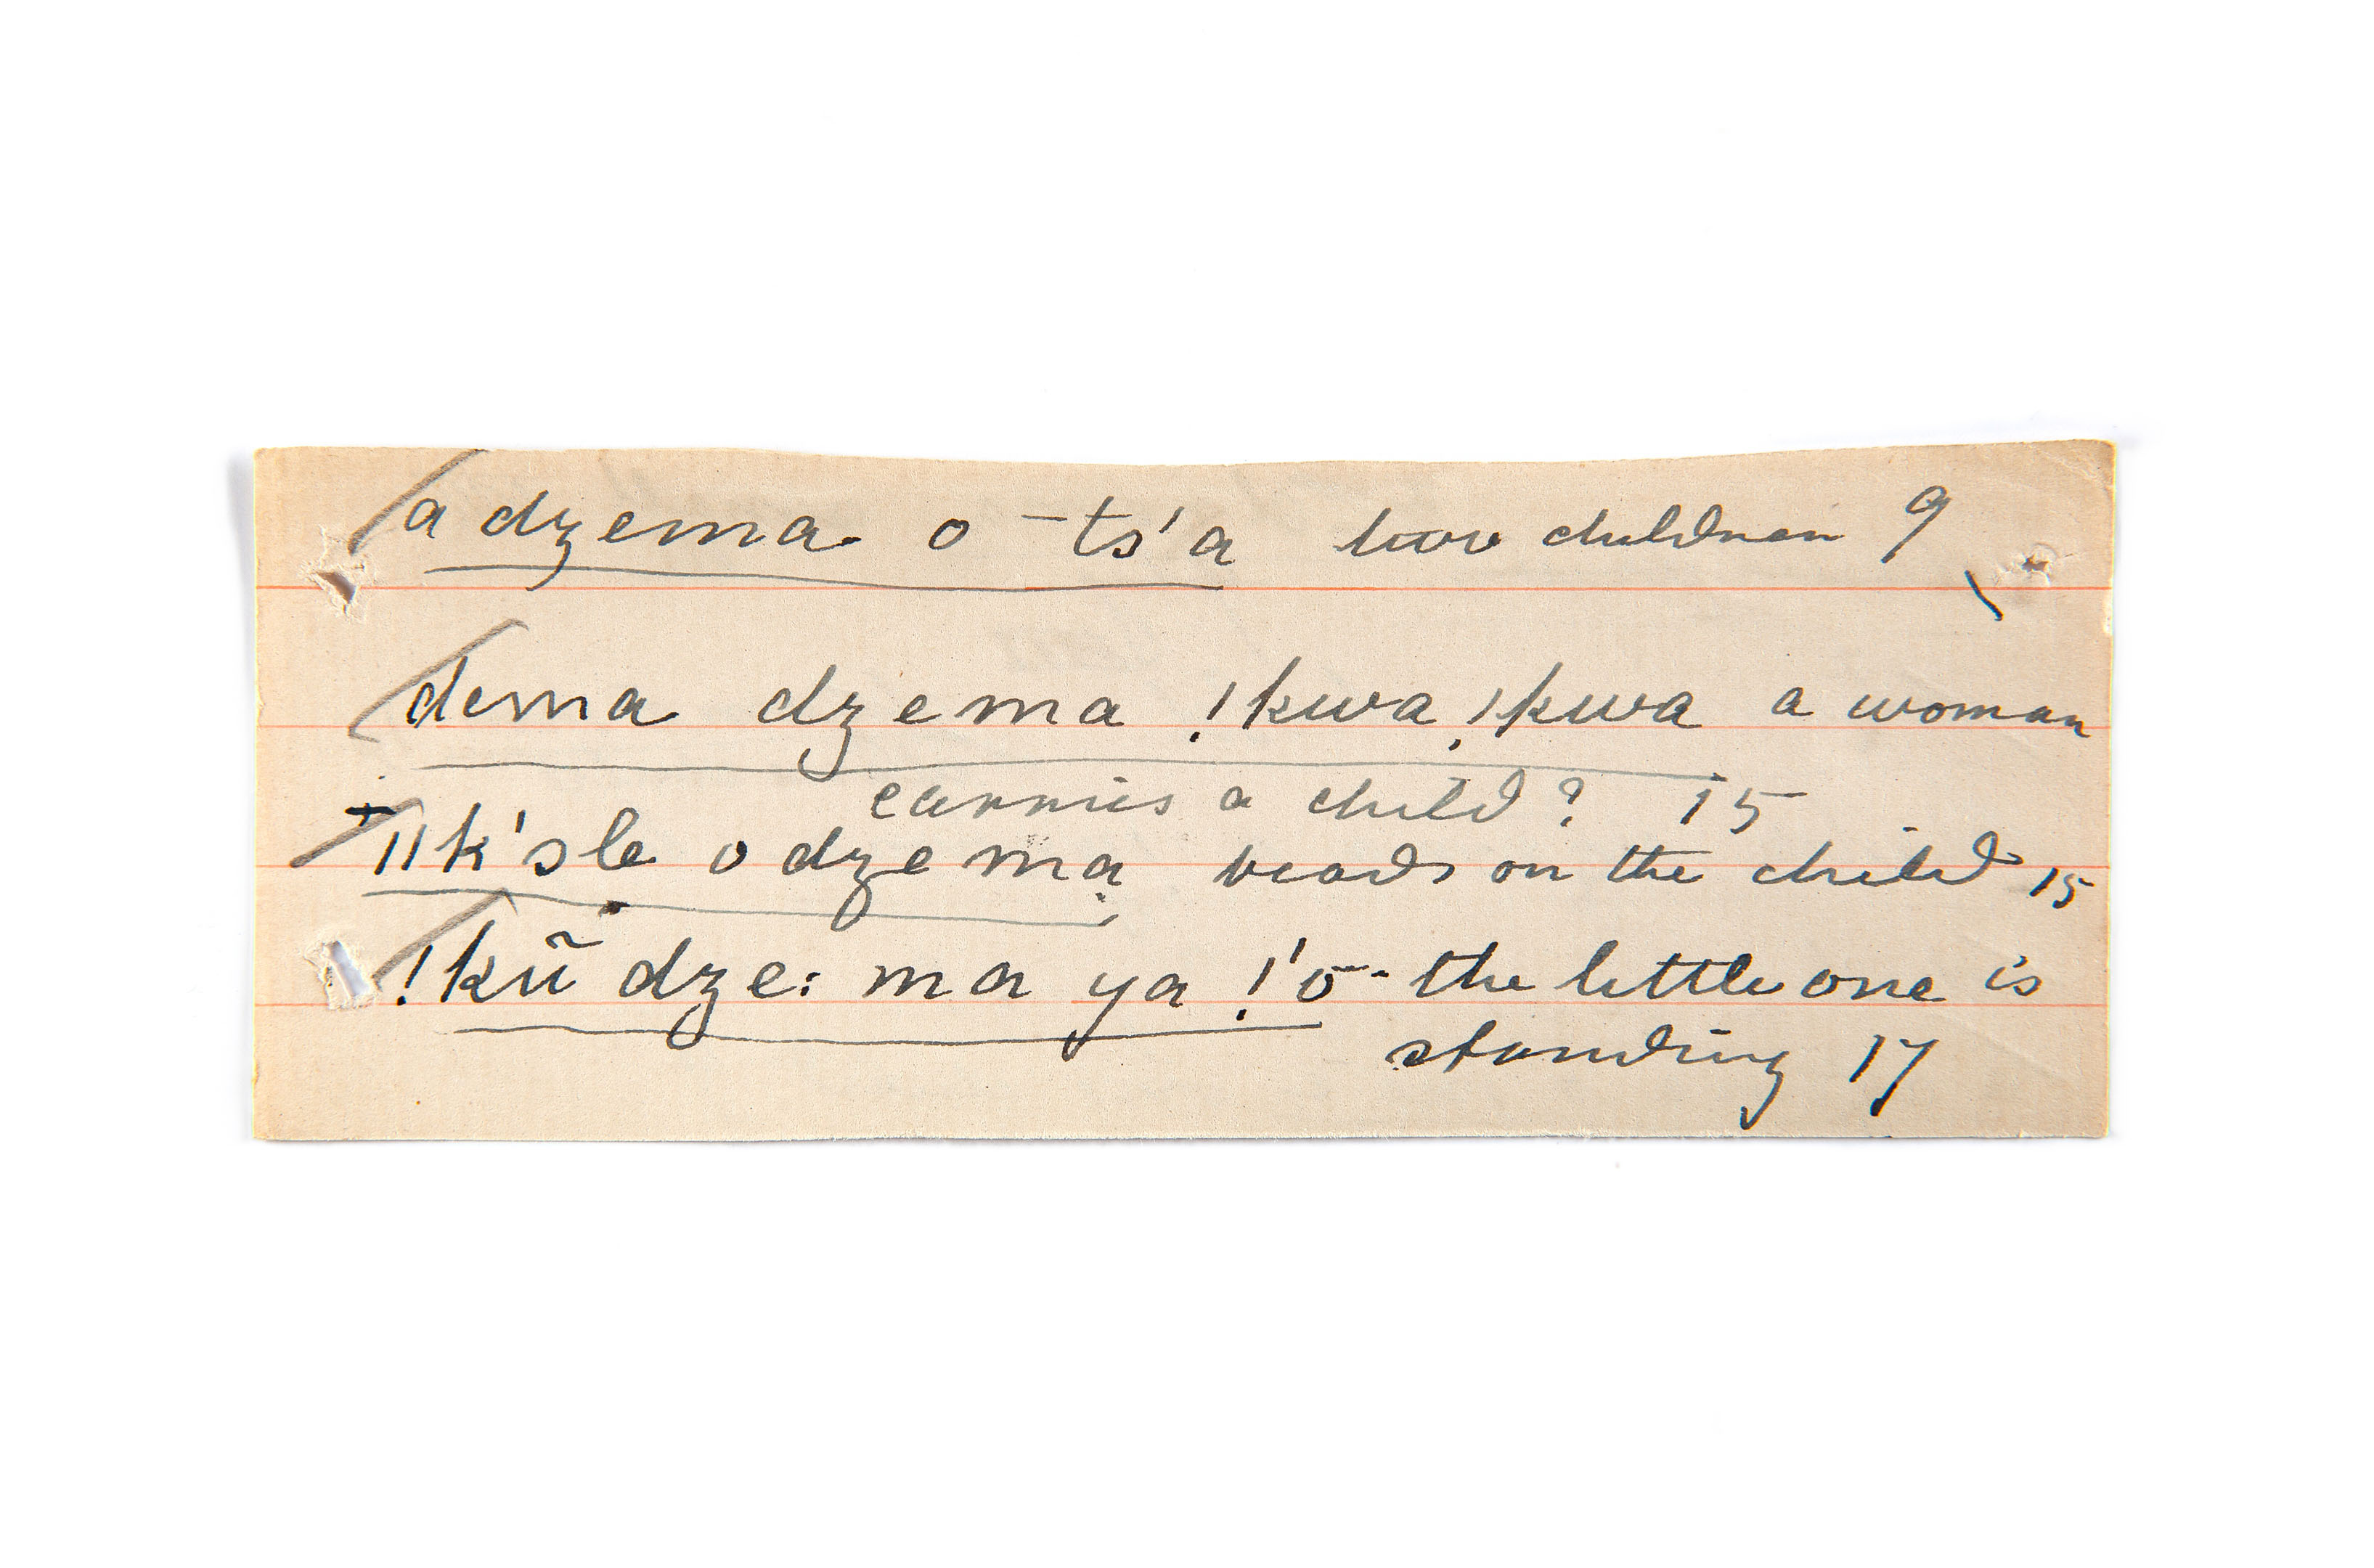 a dzema o - ts'a two children 9
dema dzema !kwa !kwa a woman
carries a child? 15
ǁk'sle o dzema beads on the child 15
!kũ dze: ma ya !'o - the little one is
standing 17